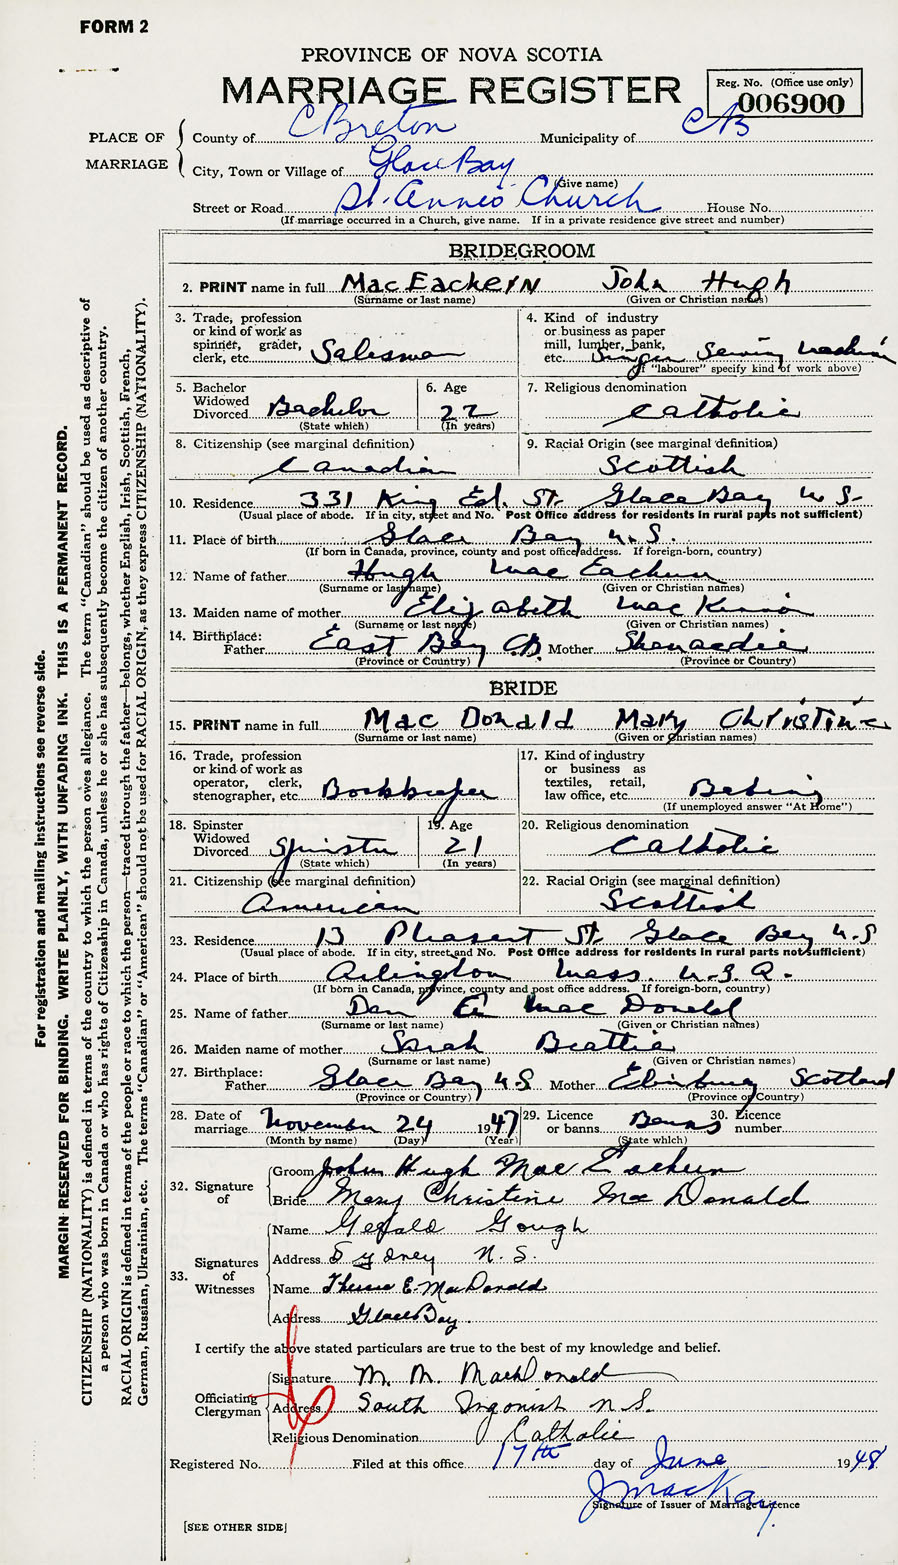 FORM 2
PROVINCE OF NOVA SCOTIA
MARRIAGE REGISTER
Reg. No. (Office use only)
006900
PLACE OF MARRIAGE
County of C Breton Municipality of CB
City, Town or Village of Glace Bay
(Give name)
Street or Road St. Anne's Church House No.
(If marriage occurred in a Church, give name. If in a private residence give street and number)
BRIDEGROOM
2. PRINT name in full MacEachern John Hugh
(Surname or last name) (Given or Christian names)
3. Trade, profession or kind of work as spinner, grader, clerk, etc. Salesman
4. Kind of industry or business as paper mill, lumber, bank, etc. Singer Sewing Machine
If "labourer" specify kind of work above)
5. Bachelor Widowed Divorced Bachelor
(State which)
6. Age 22
(In years)
7. Religious denomination
Catholic
8. Citizenship (see marginal definition)
Canadian
9. Racial Origin (see marginal definition)
Scottish
10. Residence 331 King Ed. St. Glace Bay N.S.
(Usual place of abode. If in city, street and No. Post Office address for residents in rural parts not sufficient)
11. Place of birth Glace Bay N.S.
(If born in Canada, province, county and post office address. If foreign-born, country)
12. Name of father Hugh MacEachern
(Surname or last name) (Given or Christian names)
13. Maiden name of mother Elizabeth MacKinnon
(Surname or last name) (Given or Christian names)
14. Birthplace: Father East Bay C.B. Mother
(Province or Country) (Province or Country)
BRIDE
15. PRINT name in full MacDonald Mary Christine
(Surname or last name) (Given or Christian names)
16. Trade, profession or kind of work as operator, clerk, stenographer, etc. Bookkeeper
17. Kind of industry or business as textiles, retail, law office, etc. Baking
(If unemployed answer "At Home")
18. Spinster Widowed Divorced Spinster
(State which)
19. Age 21
(In years)
20. Religious denomination
Catholic
21. Citizenship (see marginal definition)
American
22. Racial Origin (see marginal definition)
Scottish
23. Residence 13 Pleasant St. Glace Bay N.S
(Usual place of abode. If in city, street and No. Post Office address for residents in rural parts not sufficient)
24. Place of birth Arlington Mass. U.S.A.
(If born in Canada, province, county and post office address. If foreign-born, country)
25. Name of father Dan MacDonald
(Surname or last name) (Given or Christian names)
26. Maiden name of mother Sarah Beattie
(Surname or last name) (Given or Christian names)
27. Birthplace: Father Glace Bay N.S Mother Edinburg Scotland
(Province or Country) (Province or Country)
28. Date of marriage November 24 1947
(Month by name) (Day) (Year)
29. Licence or banns Banns
(State which)
30. Licence number
32. Signature of
Groom John Hugh MacEachern
Bride Mary Christine MacDonald
33. Signatures of Witnesses
Name Gerald Gough
Address Sydney N.S.
Name Theresa E. MacDonald
Address Glace Bay.
I certify the above stated particulars are true to the best of my knowledge and belief.
Officiating Clergyman
Signature M. M. MacDonald
Address South Ingonish N.S.
Religious Denomination Catholic
Registered No. Filed at this office 17th day of June 1948
J MacKay
Signature of Issuer of Marriage Licence
[SEE OTHER SIDE]
For registration and mailing instructions see reverse side.
MARGIN RESERVED FOR BINDING. WRITE PLAINLY, WITH UNFADING INK. THIS IS A PERMANENT RECORD.
CITIZENSHIP (NATIONALITY) is defined in terms of the country to which the person owes allegiance. The term "Canadian" should be used as descriptive of
a person who was born in Canada or who has rights of Citizenship in Canada, unless he or she has subsequently become the citizen of another country.
RACIAL ORIGIN is defined in terms of the people or race to which the person—traced through the father—belongs, whether English, Irish, Scottish, French,
German, Russian, Ukrainian, etc. The terms "Canadian" or "American" should not be used for RACIAL ORIGIN, as they express CITIZENSHIP (NATIONALITY).